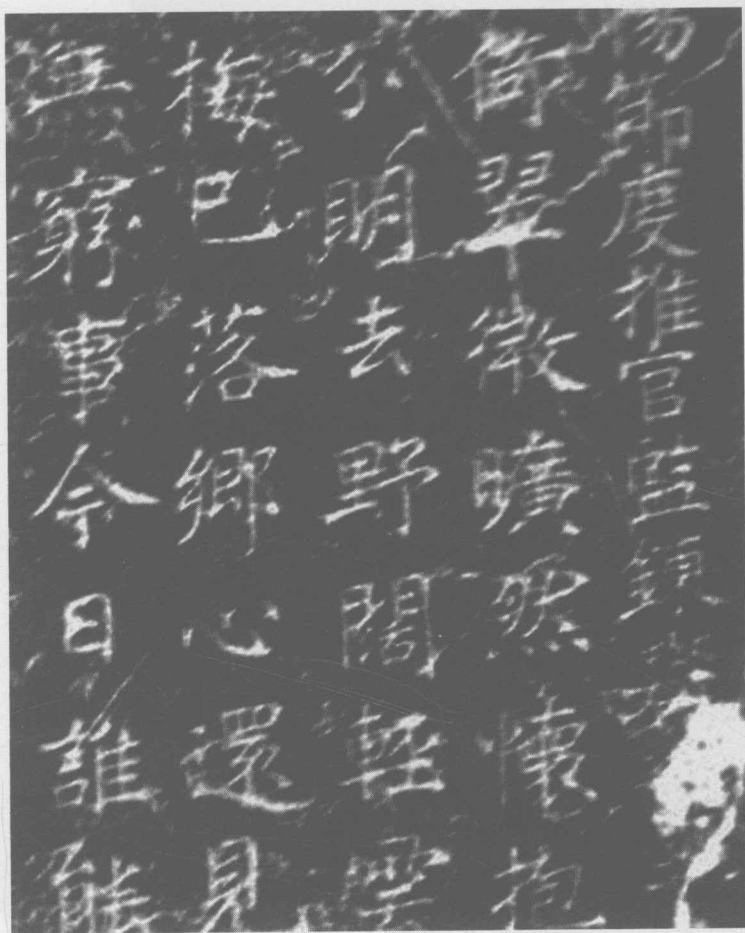 節度推官監鎮
翠微曠然懷抱
明去野闊輕雲
梅已落鄉心還見
無窮事今日誰能